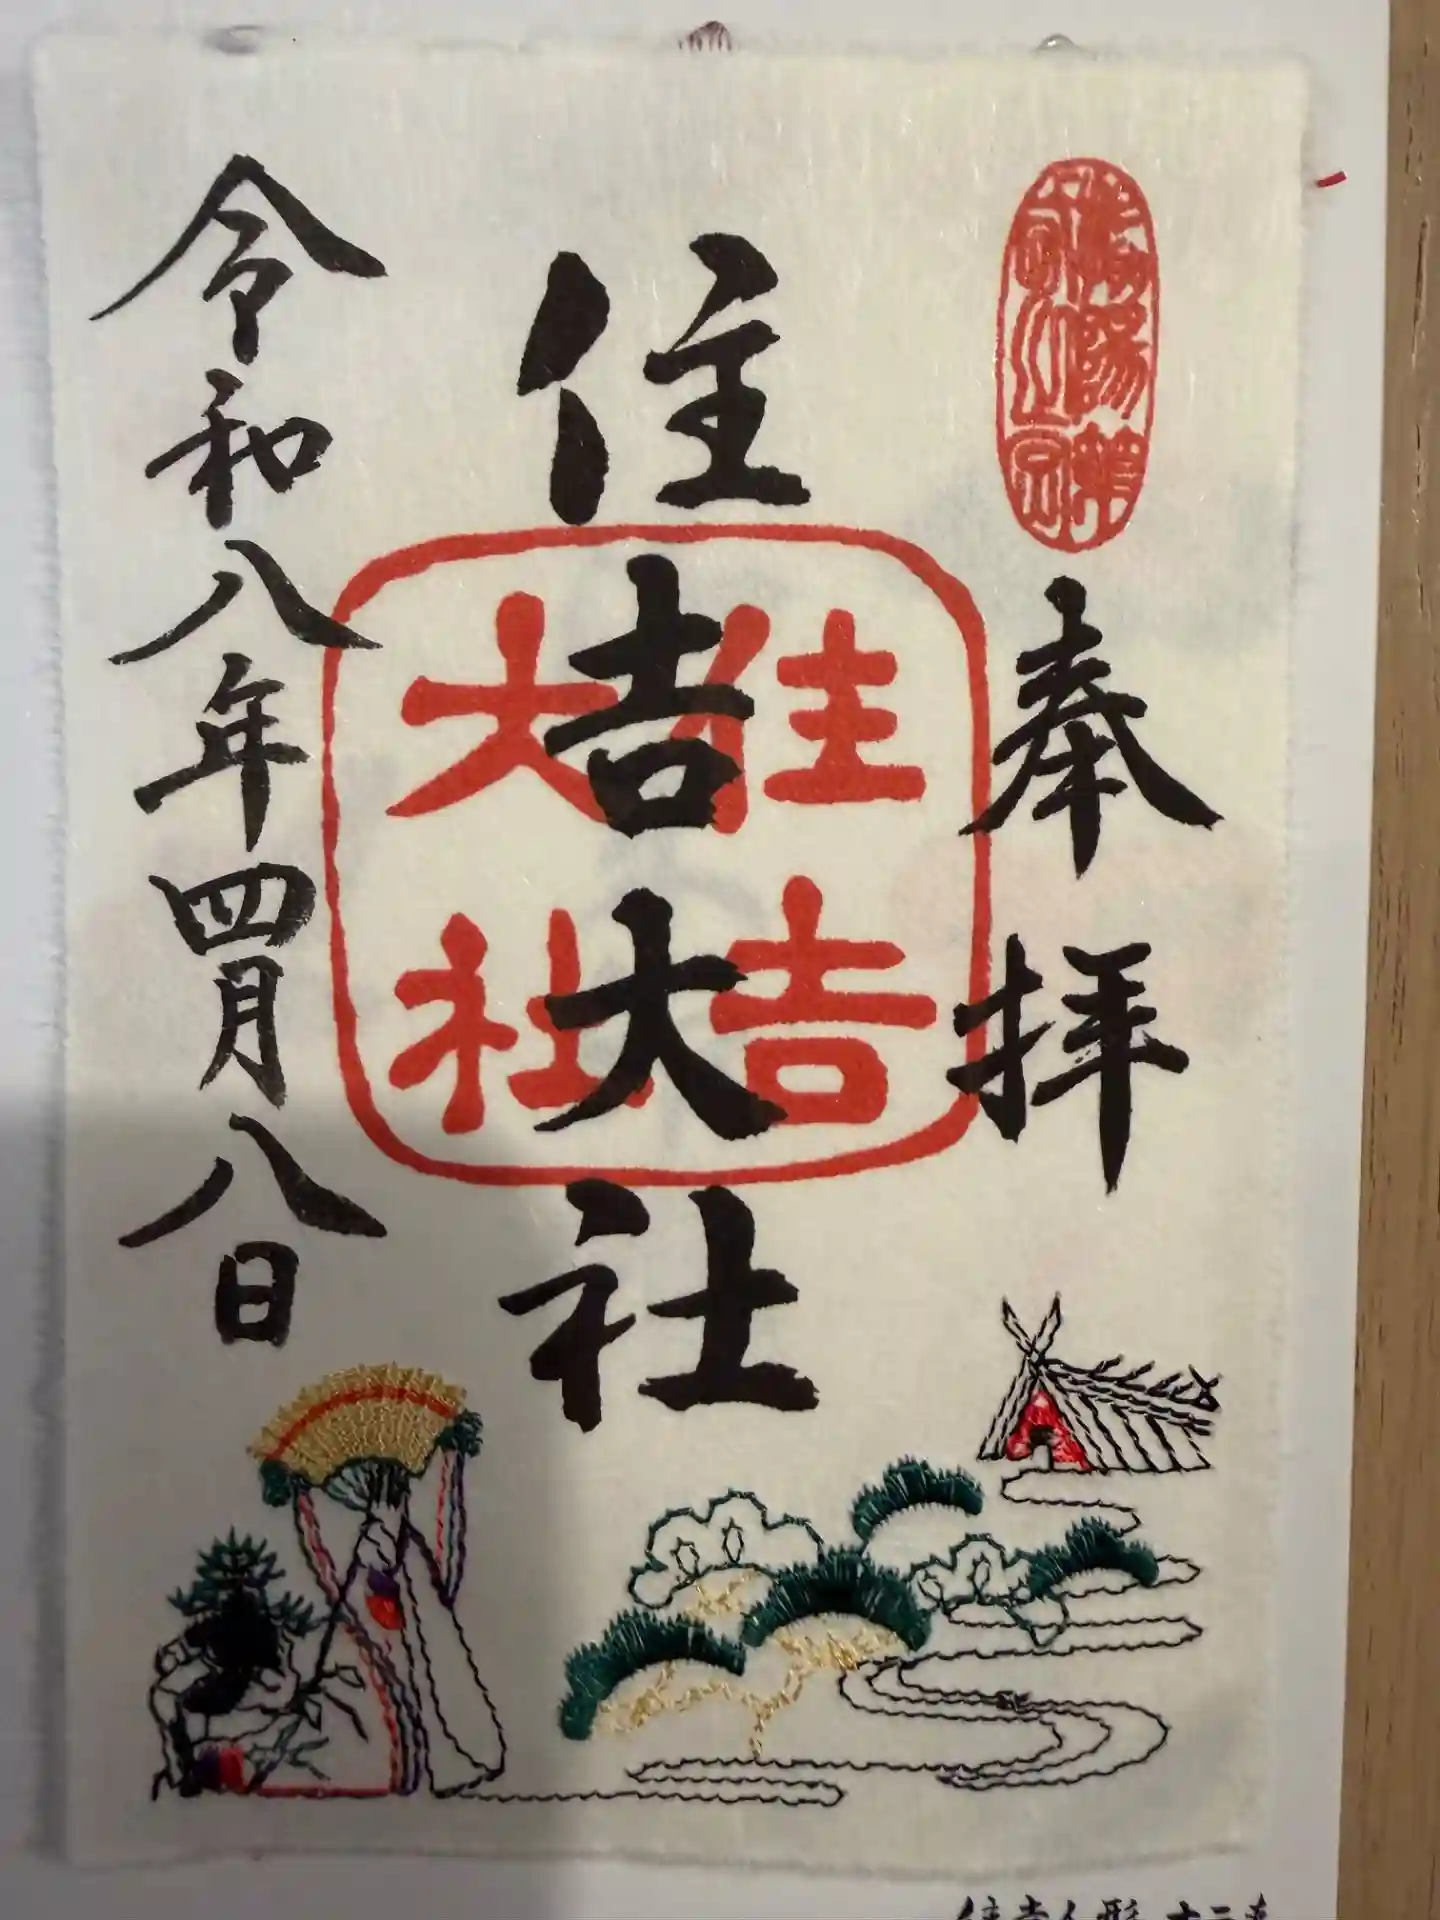 奉拝
住吉大社
住吉
大社
令和八年四月八日
住吉人形 十二支